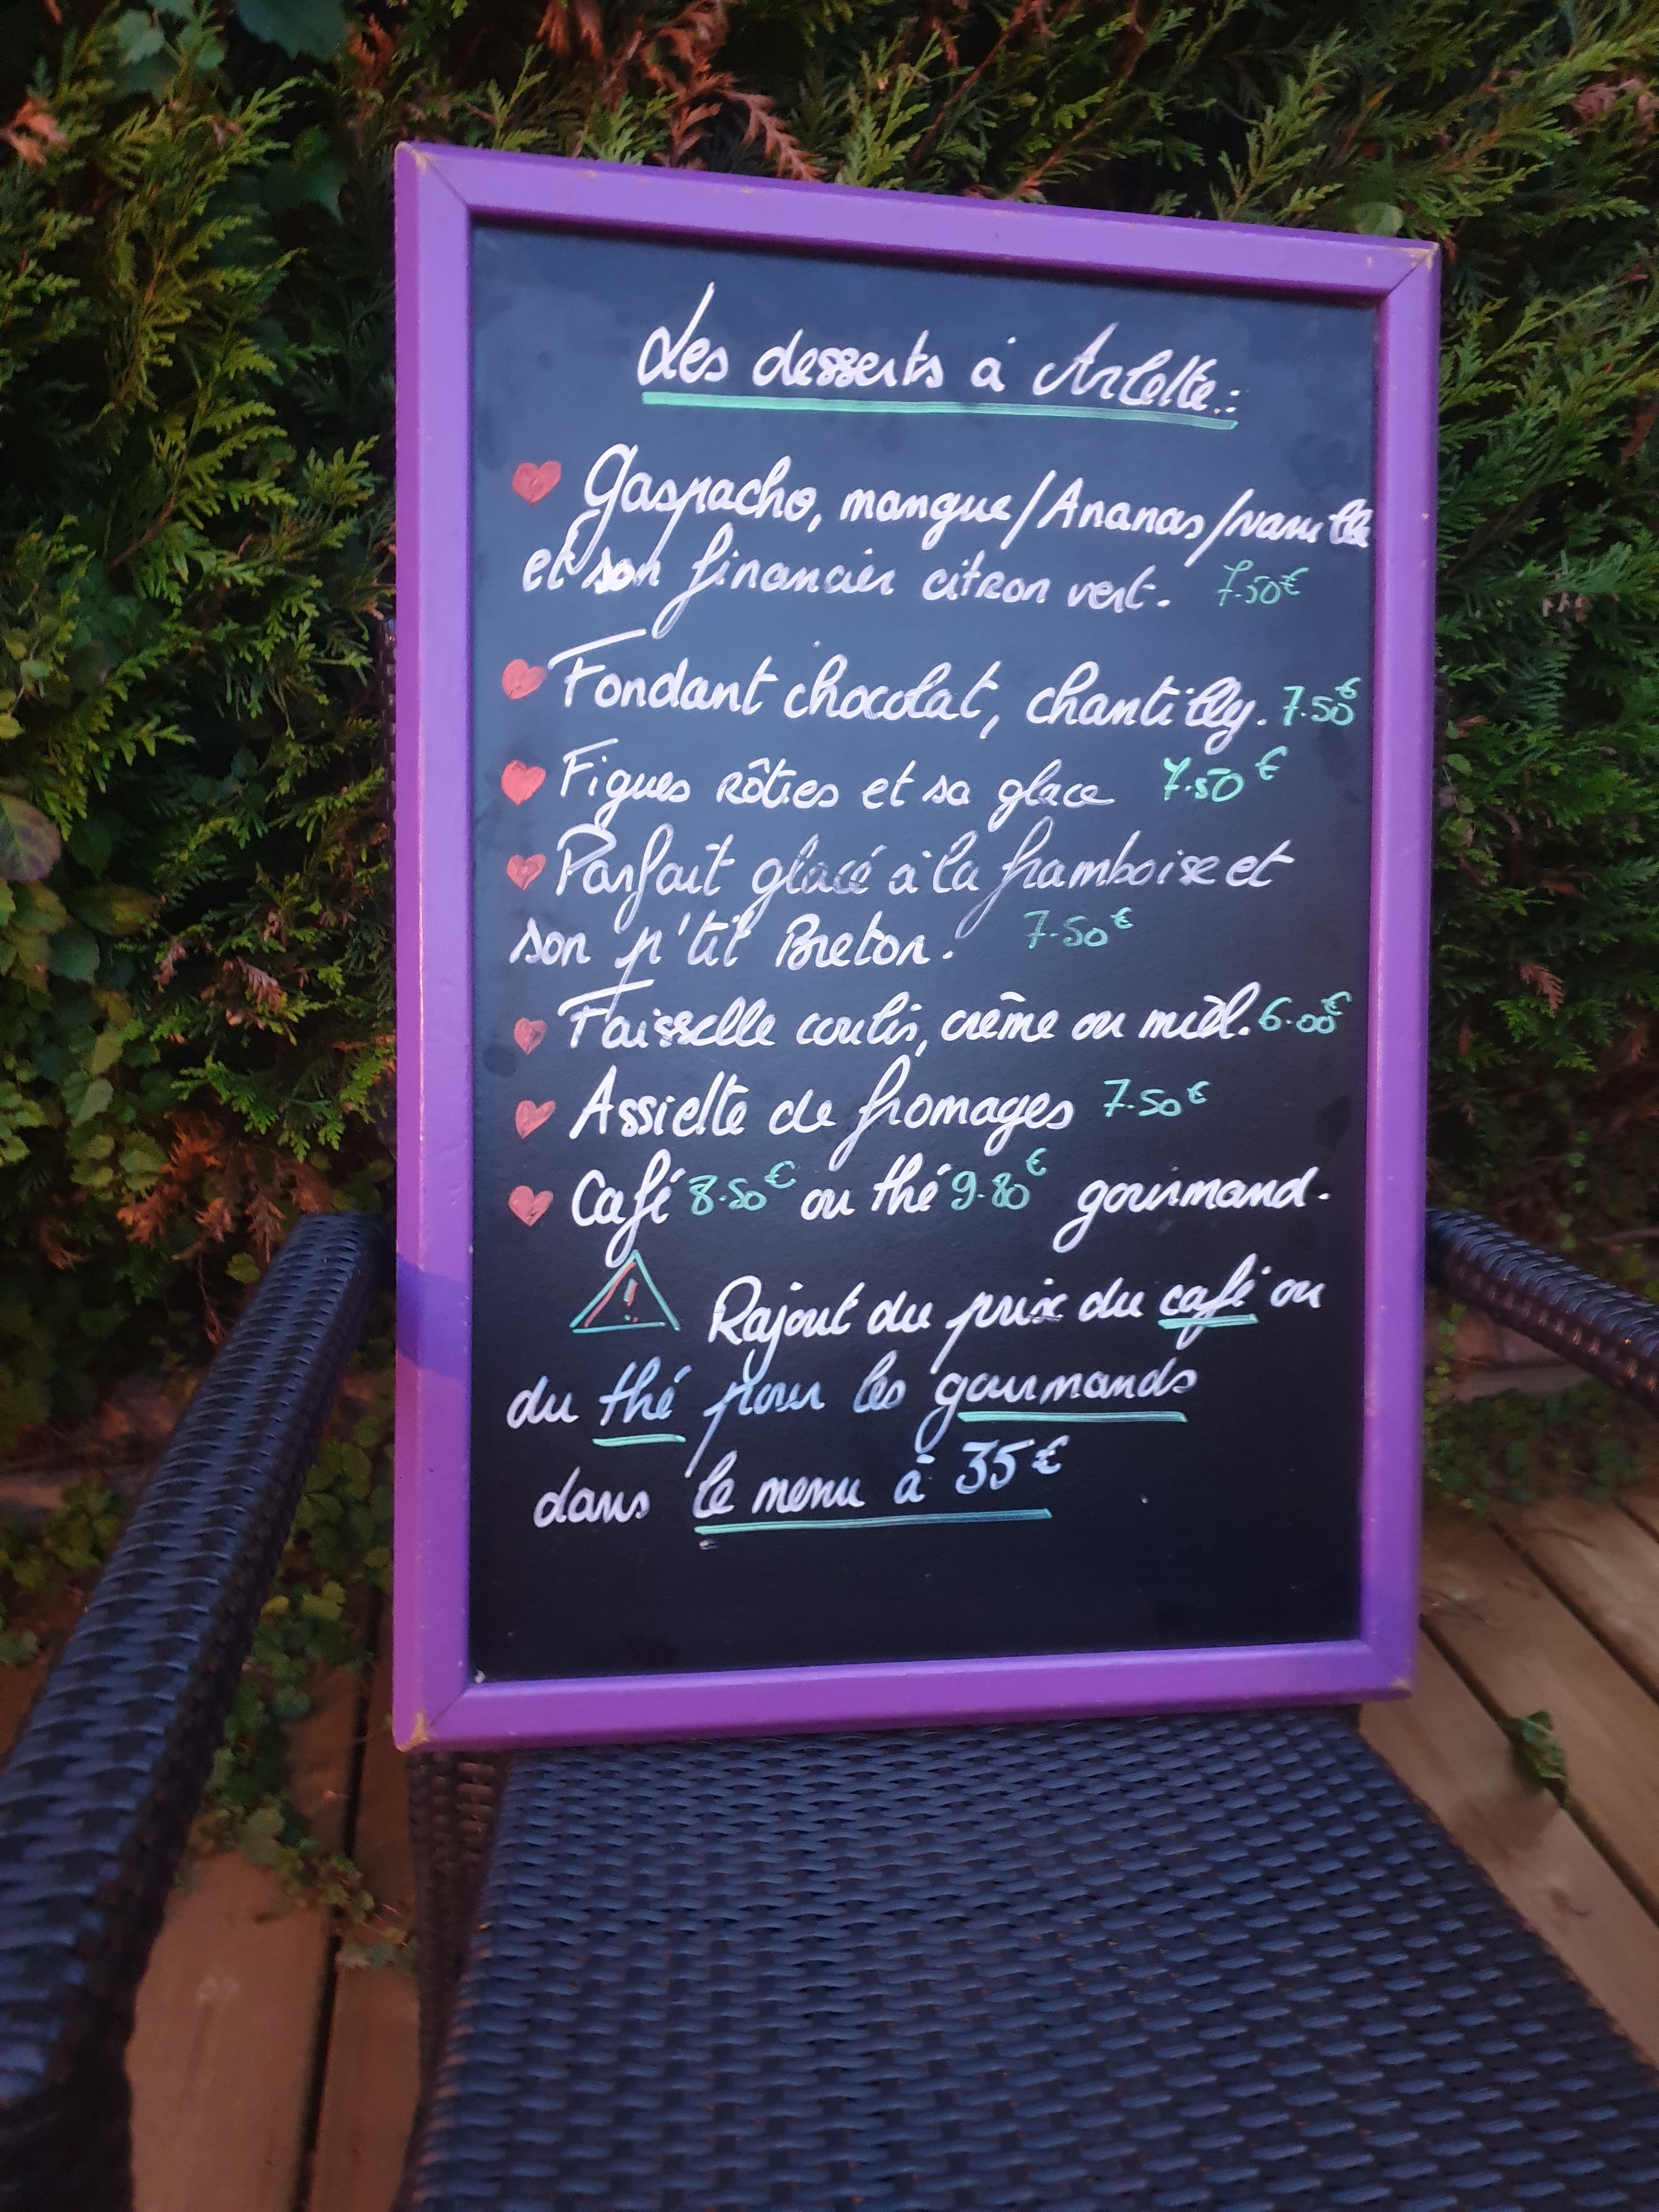 Les desserts à Arlette.:
Gaspacho, mangue/Ananas/vanille
et son financier citron vert. 7.50€
Fondant chocolat, chantilly. 7.50€
Figues rôties et sa glace 7.50€
Parfait glacé à la framboise et
son p'tit Breton. 7.50€
Faisselle coulis, crême ou mièl. 6.00€
Assiette de fromages 7.50€
Café 8.50€ ou thé 9.80€ gourmand.
! Rajout du prix du café ou
du thé pour les gourmands
dans le menu à 35€